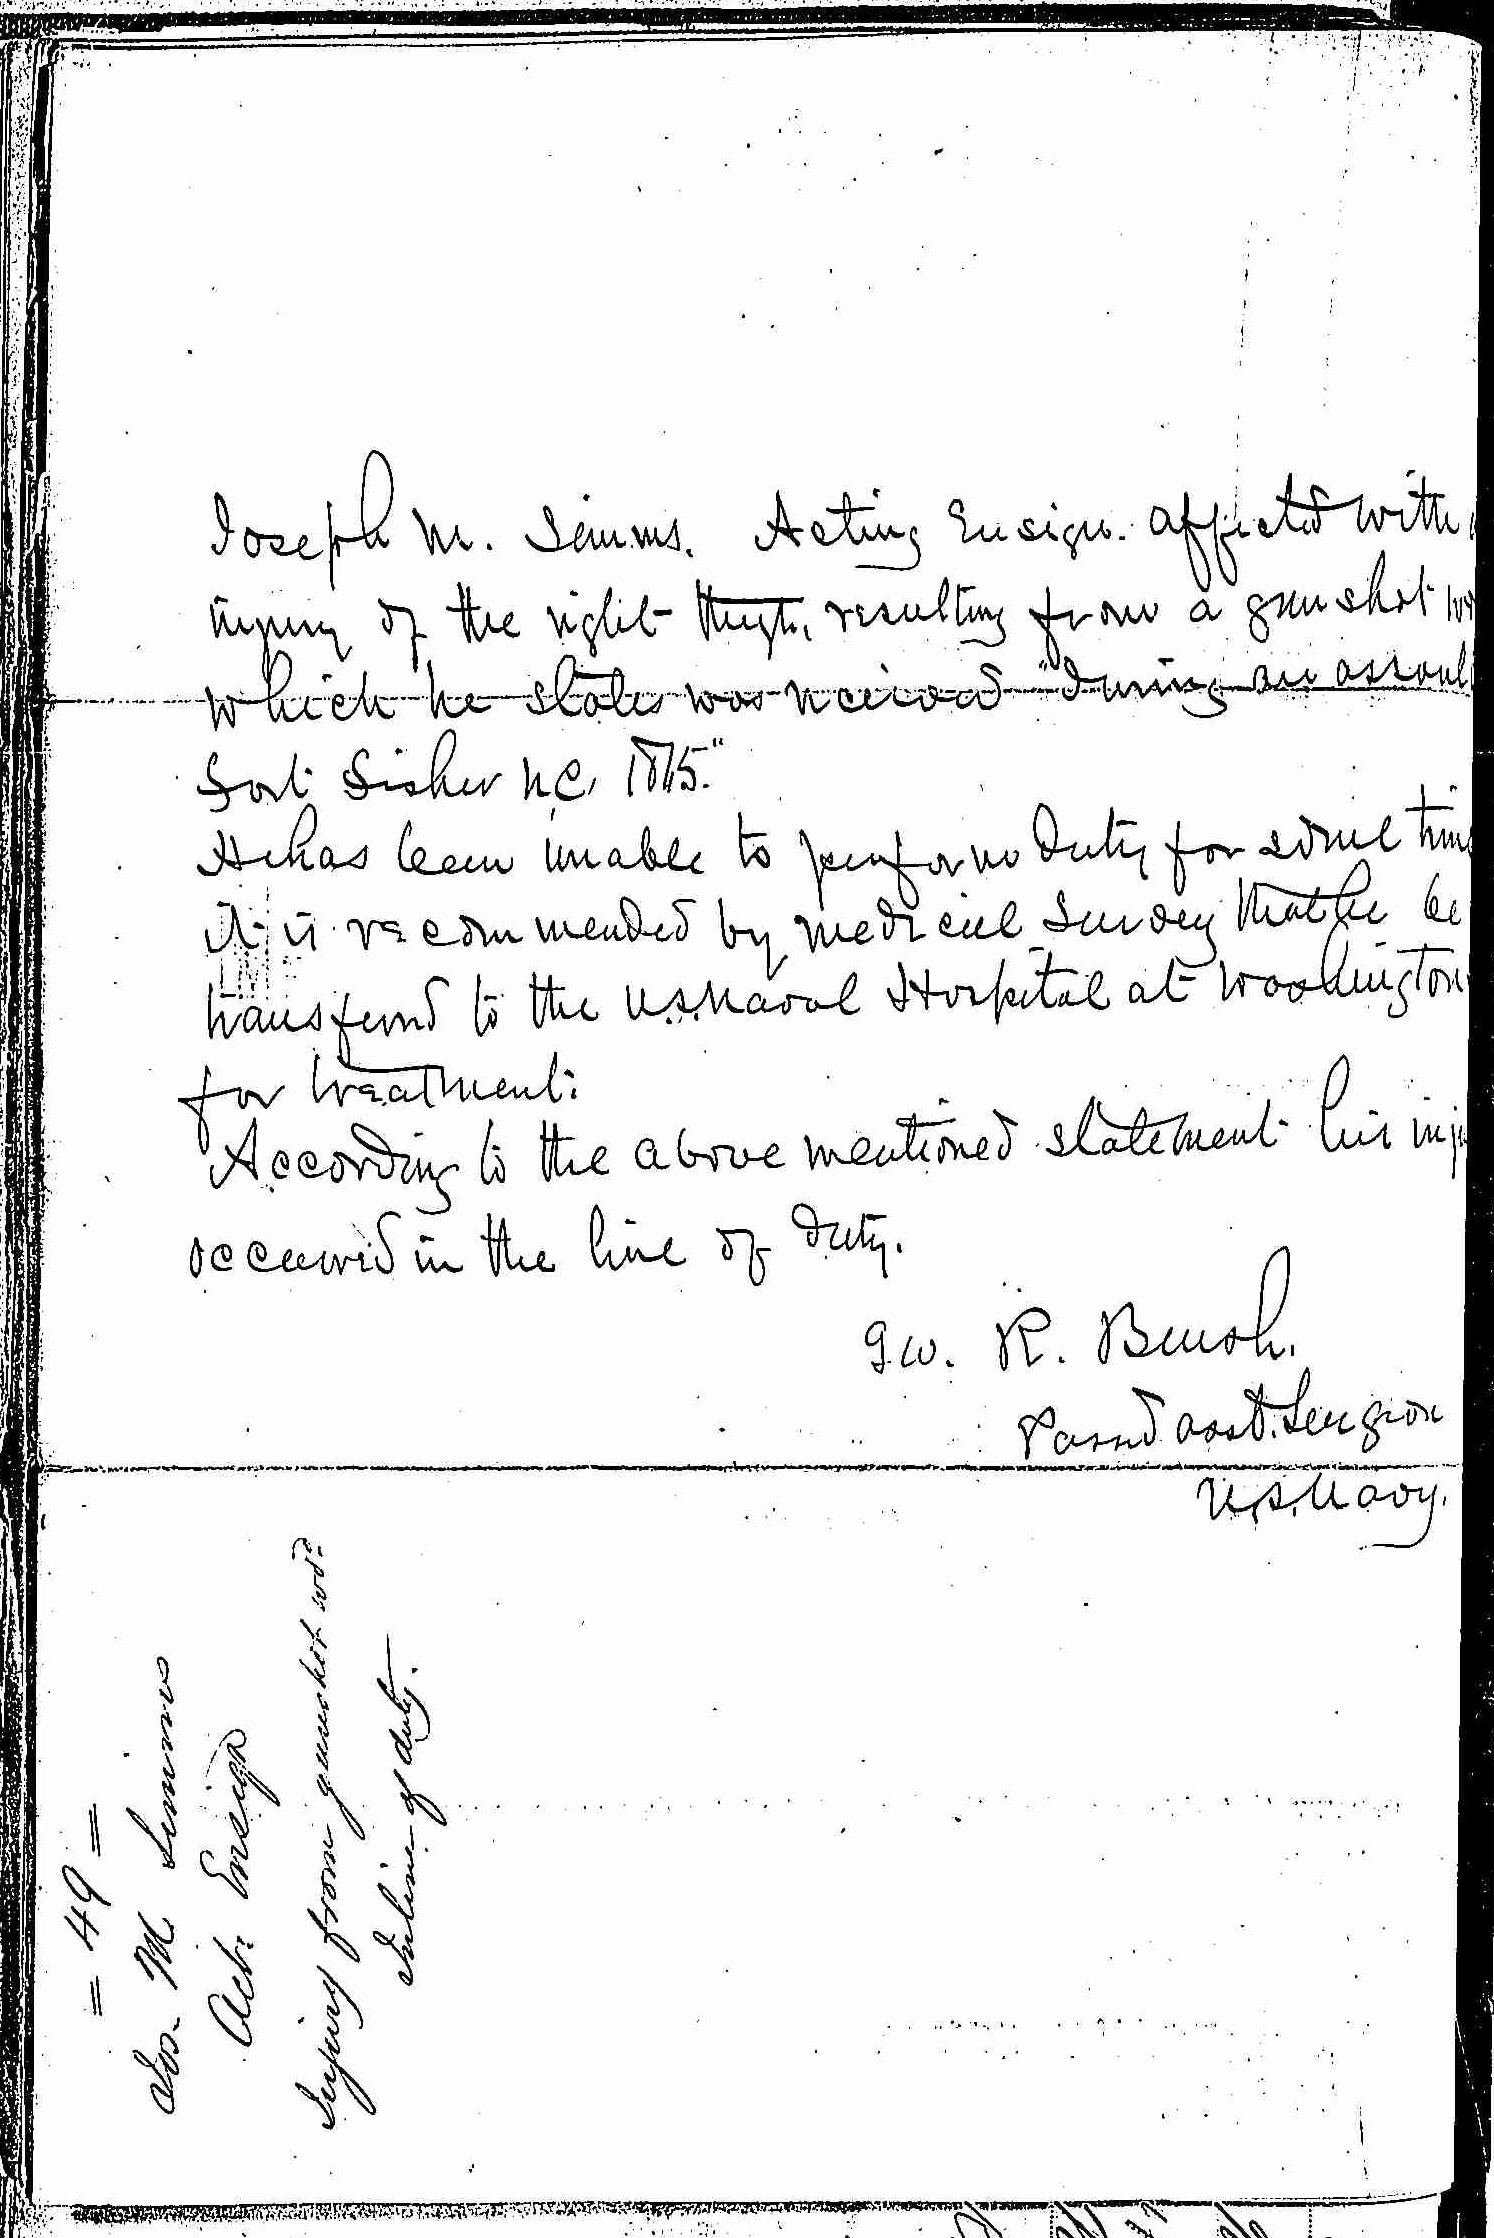 Joseph M. Simms. Acting Ensign. affected with
injury of the right thigh, resulting from a gun shot wo
which he states was received "during an assaul
Fort Fisher N.C. 1865."
He has been unable to perform duty for some time
it is recommended by medical survey that he be
transferred to the U.S. Naval Hospital at Washington
for treatment.
According to the above mentioned statement his inju
occurred in the line of duty.
Geo. R. Brush.
Passed asst. Surgeon
U.S. Navy.
= 49 =
Jos. M Simms
Act. Ensign
Injury from gunshot wd.
In line of duty.